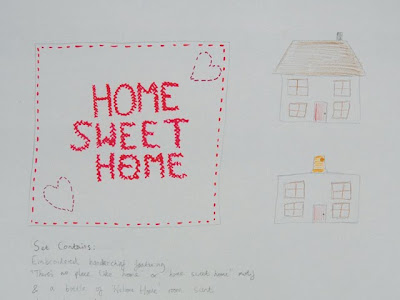 HOME
SWEET
HOME
Set Contains:
Embroidered handkerchief featuring
'There's no place like home' or 'home sweet home' motif
& a bottle of home